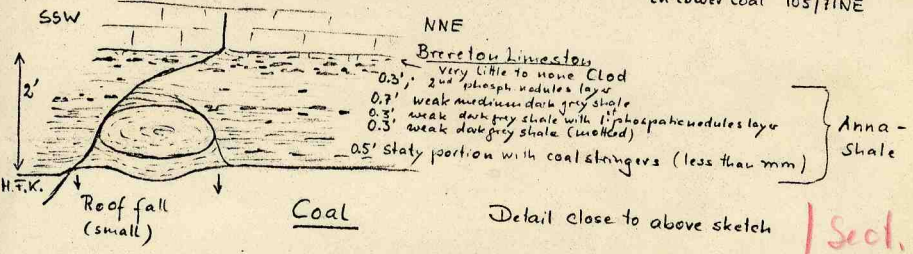 SSW
in lower coal 105/71NE
NNE
Brereton Limeston
very little to none Clod
0.3', 2nd phosph nodules layer
0.7' weak medium dark grey shale
0.3' weak dark grey shale with 1st phospatic nodules layer
0.3' weak dark grey shale (mottled)
0.5' Slaty portion with coal stringers (less than mm)
Anna-
Shale
2'
H.F.K.
Roof fall
(small)
Coal
Detail close to above sketch
Sect.